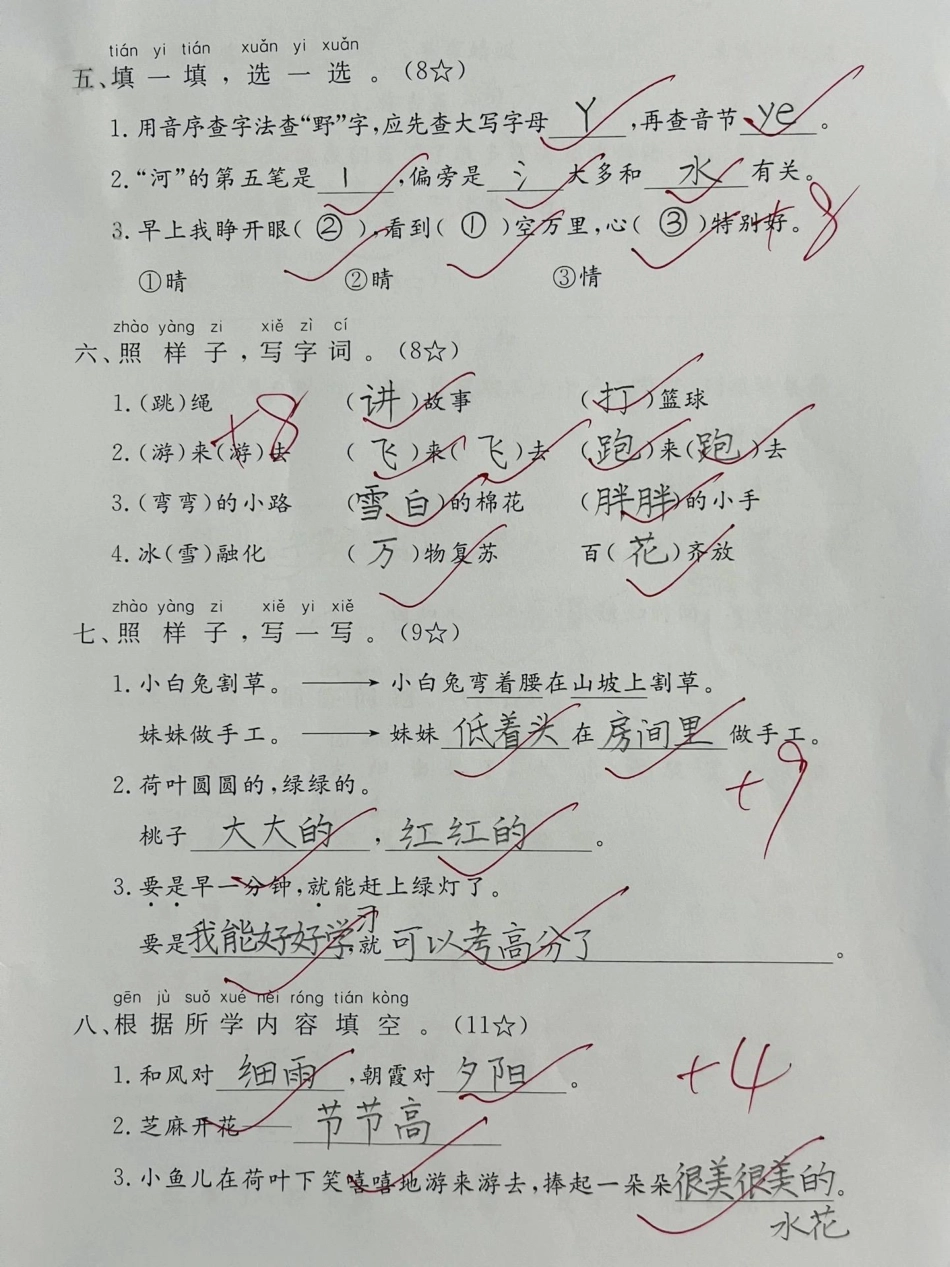 tián yi tián xuǎn yi xuǎn
五、填一填，选一选。（8☆）
1.用音序查字法查“野”字，应先查大写字母 Y ，再查音节 ye 。
2.“河”的第五笔是 丨 ，偏旁是 氵 大多和 水 有关。
3.早上我睁开眼（ ② ），看到（ ① ）空万里，心（ ③ ）特别好。
+8
①晴 ②睛 ③情
zhào yàng zi xiě zì cí
六、照样子，写字词。（8☆）
1.（跳）绳 （讲）故事 （打）篮球
+8
2.（游）来（游）去 （飞）来（飞）去 （跑）来（跑）去
3.（弯弯）的小路 （雪白）的棉花 （胖胖）的小手
4.冰（雪）融化 （万）物复苏 百（花）齐放
zhào yàng zi xiě yi xiě
七、照样子，写一写。（9☆）
1.小白兔割草。 ⟶ 小白兔弯着腰在山坡上割草。
妹妹做手工。 ⟶ 妹妹 低着头 在 房间里 做手工。
+9
2.荷叶圆圆的，绿绿的。
桃子 大大的 ， 红红的 。
3.要是早一分钟，就能赶上绿灯了。
要是我能好好学习，就 可以考高分了 。
gēn jù suǒ xué nèi róng tián kòng
八、根据所学内容填空。（11☆）
1.和风对 细雨 ，朝霞对 夕阳 。
+4
2.芝麻开花—— 节节高
3.小鱼儿在荷叶下笑嘻嘻地游来游去，捧起一朵朵很美很美的。
水花